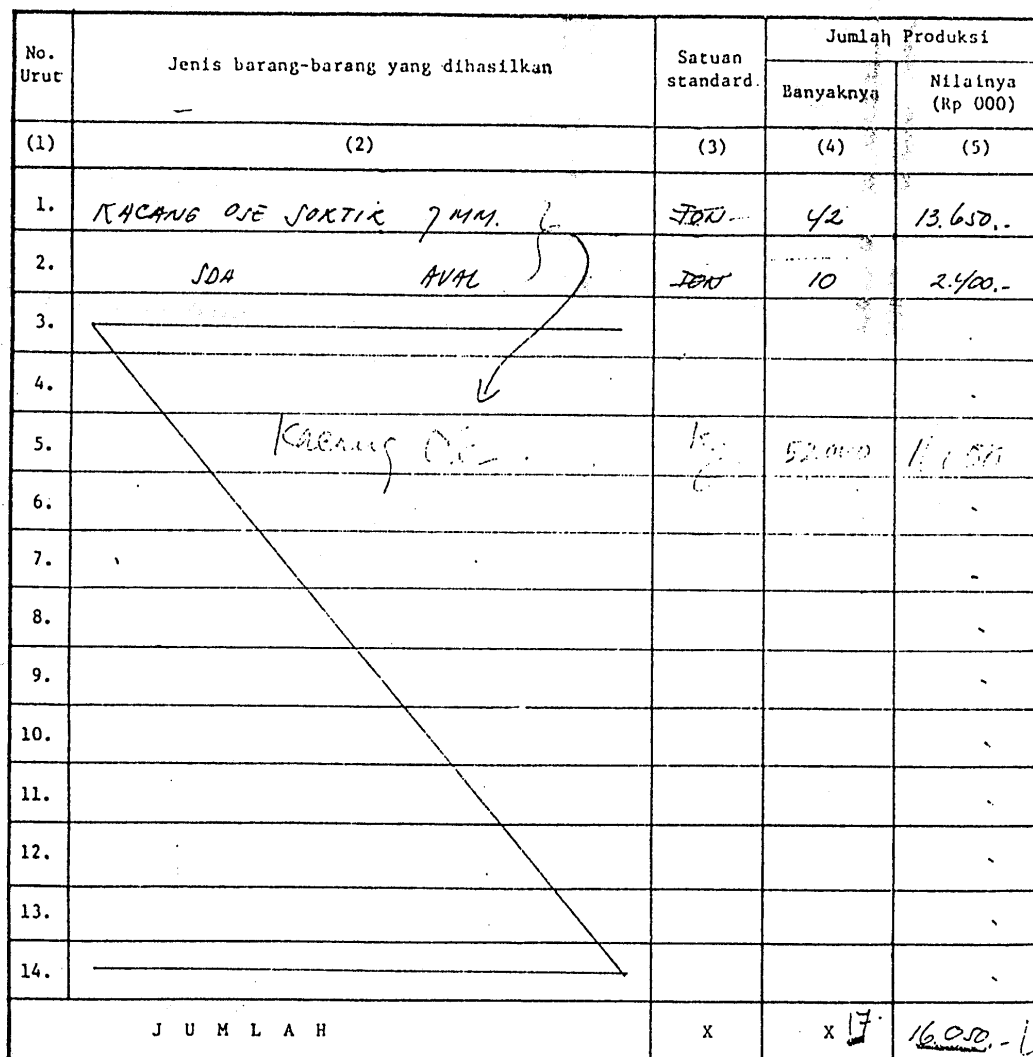 No. Urut Jenis barang-barang yang dihasilkan Satuan standard. Jumlah Produksi
Banyaknya Nilainya (Rp 000)
(1) (2) (3) (4) (5)
1. KACANG OSE SORTIR 7 MM. TON 42 13.650.-
2. SDA AVAL TON 10 2.400.-
3.
4.
5. Kacang Kg 52.000
6.
7.
8.
9.
10.
11.
12.
13.
14.
J U M L A H X X 17 16.050.-